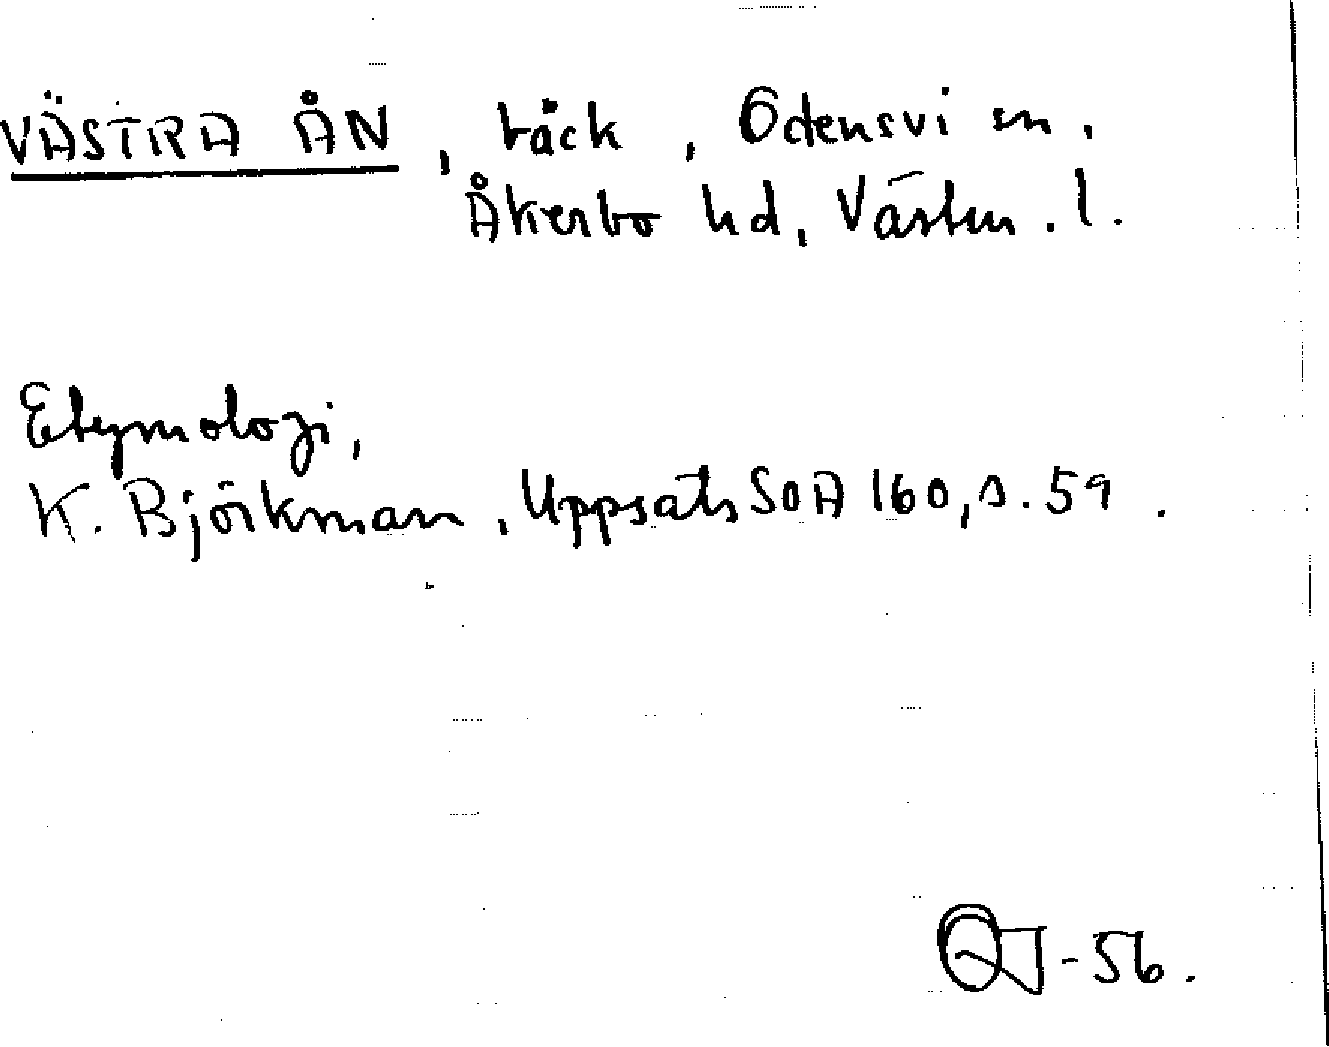 VÄSTRA ÅN, bäck, Odensvi sn.
Åkerbo hd, Västm. l.
Etymologi,
K. Björkman, Uppsats SOA 160, s. 59.
-56.